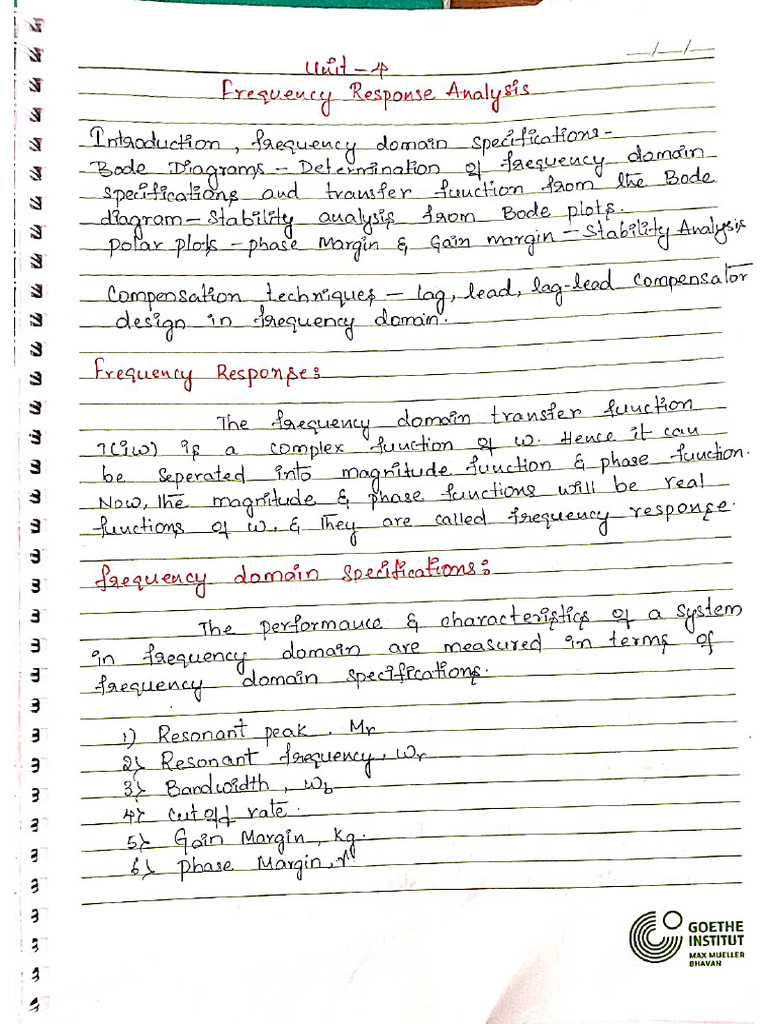 __/__/__
Unit-4
Frequency Response Analysis
Introduction, frequency domain specifications-
Bode Diagrams - Determination of frequency domain
specifications and transfer function from the Bode
diagram-Stability analysis from Bode plots.
Polar plots - phase Margin & Gain margin - Stability Analysis
Compensation techniques - Lag, lead, lag-lead compensator
design in frequency domain.
Frequency Response:
The frequency domain transfer function
T(jw) is a complex function of w. Hence it can
be seperated into magnitude function & phase function.
Now, the magnitude & phase functions will be real
functions of w, & they are called frequency response.
frequency domain specifications:
The performance & characteristics of a system
in frequency domain are measured in terms of
frequency domain specifications.
1) Resonant peak, Mr
2) Resonant frequency, wr
3) Bandwidth, wb
4) Cut off rate.
5) Gain Margin, Kg.
6) Phase Margin, r
GOETHE
INSTITUT
MAX MUELLER
BHAVAN